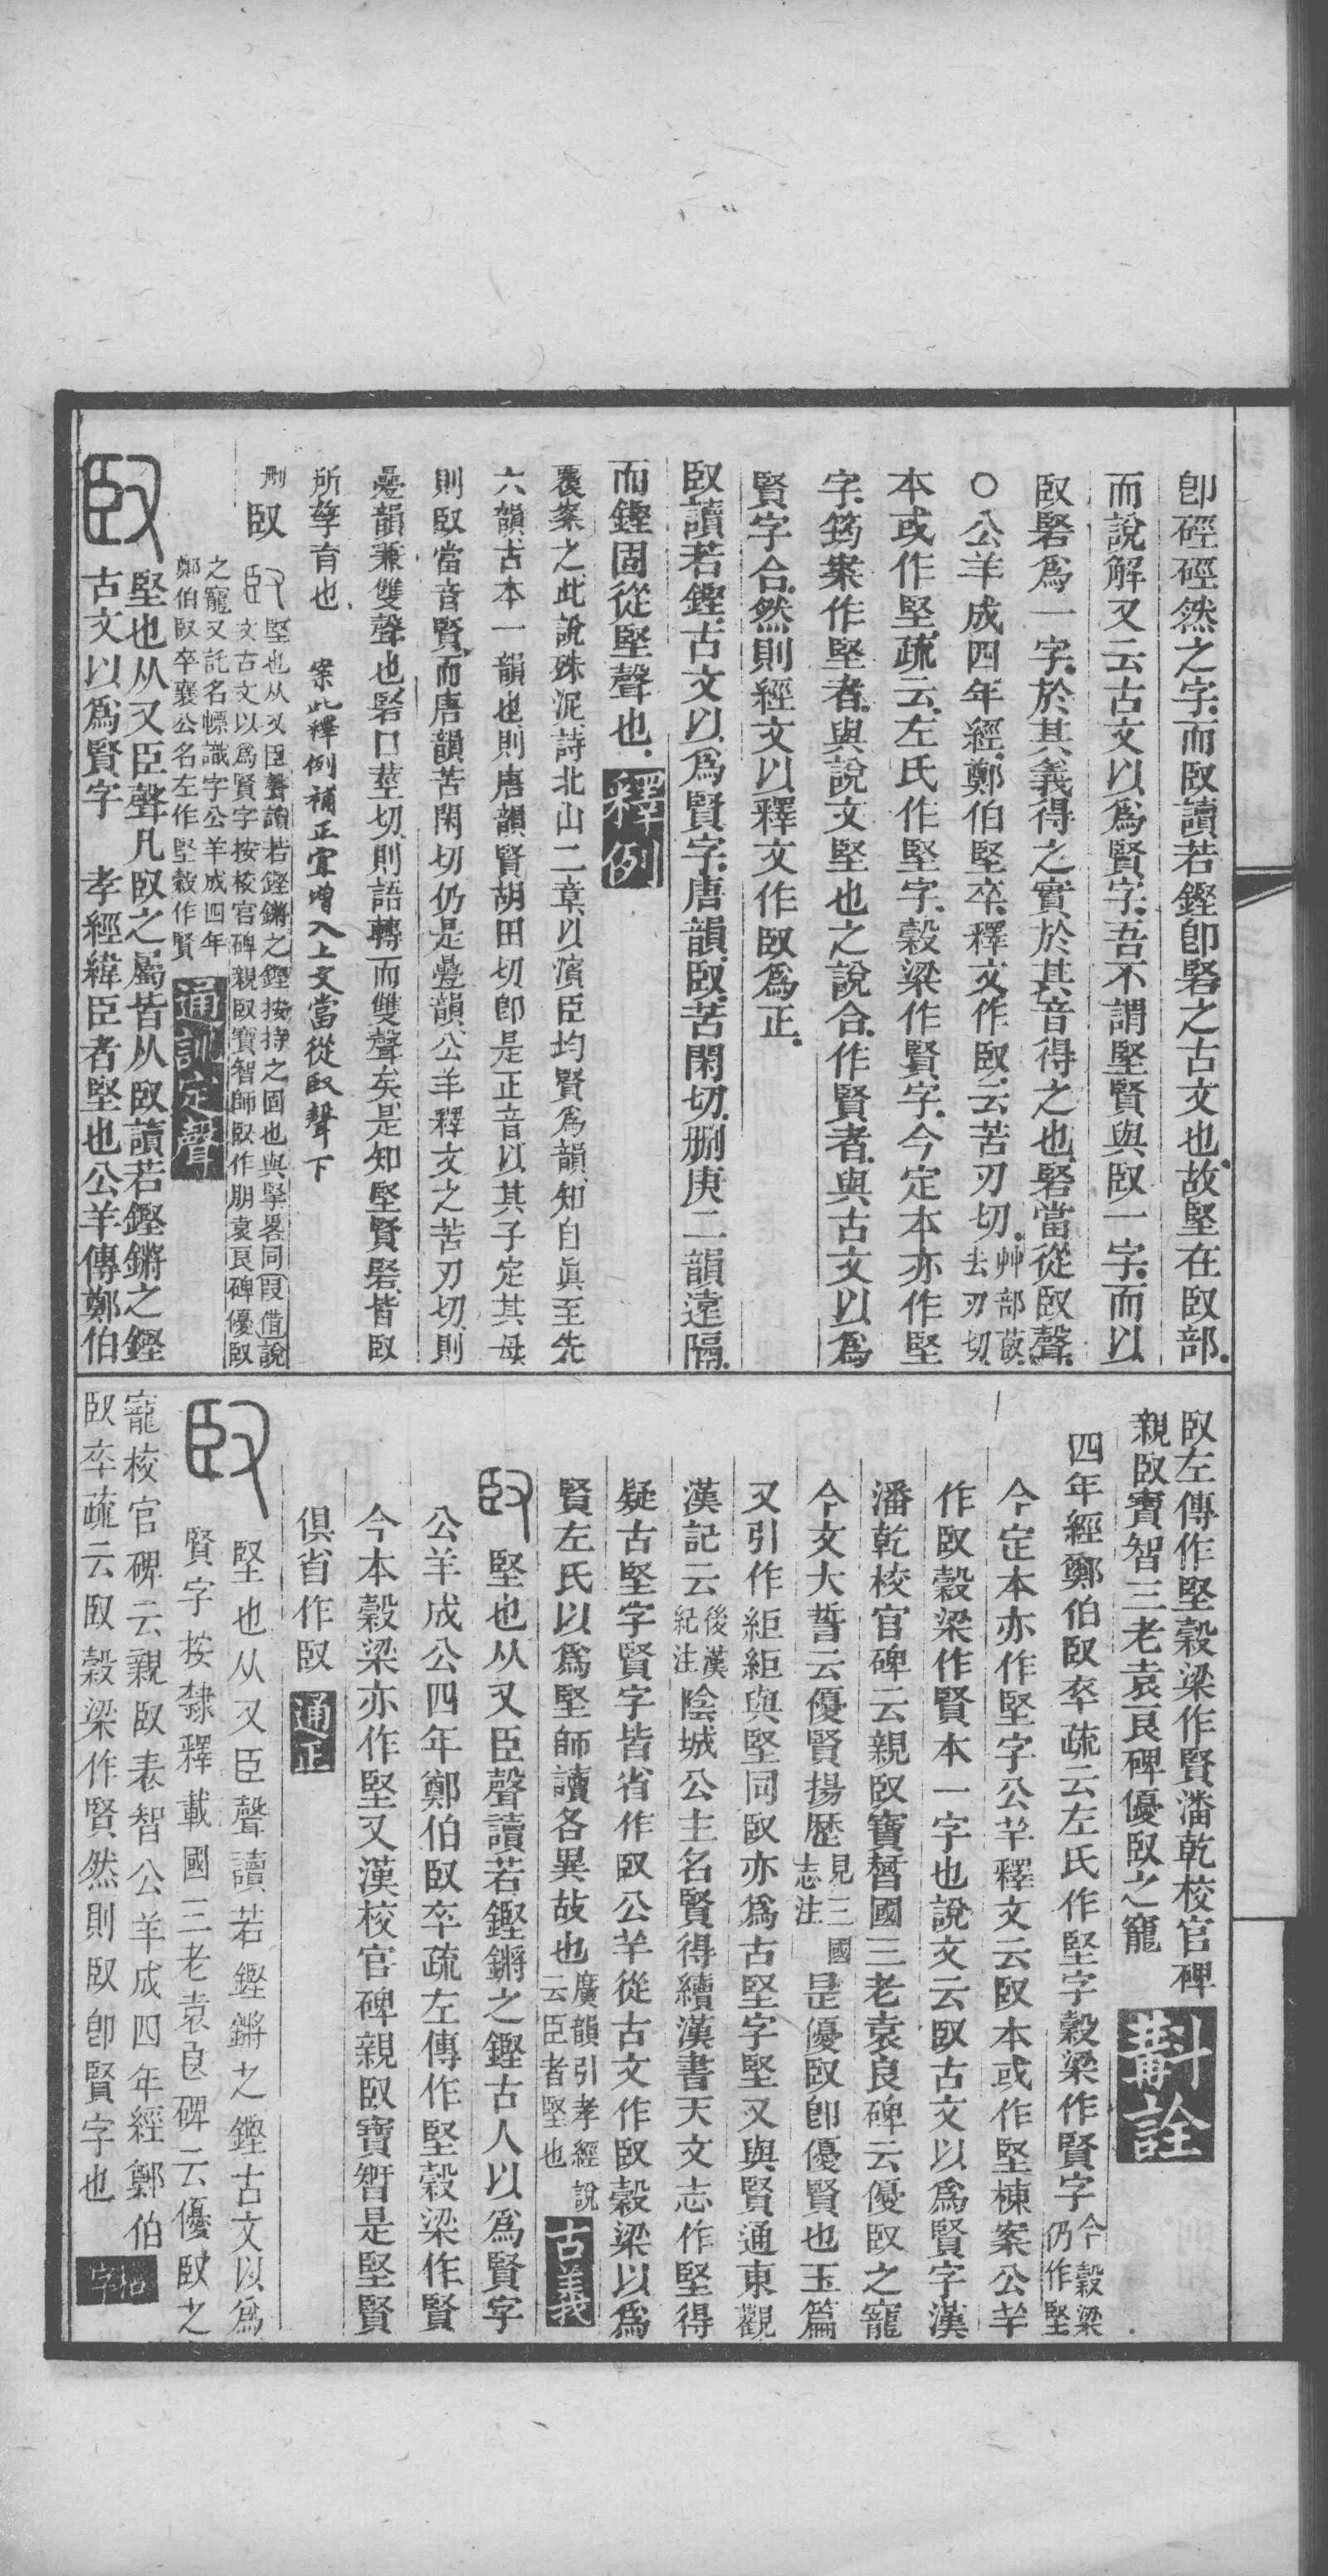 卽硜硜然之字而臤讀若鏗卽䂩之古文也故堅在臤部
而說解又云古文以爲賢字吾不謂堅賢與臤一字而以
臤䂩爲一字於其義得之實於其音得之也䂩當從臤聲
○公羊成四年經鄭伯堅卒釋文作臤云苦刃切艸部菣去刃切
本或作堅疏云左氏作堅字穀梁作賢字今定本亦作堅
字筠案作堅者與說文堅也之說合作賢者與古文以爲
賢字合然則經文以釋文作臤爲正
臤讀若鏗古文以爲賢字唐韻臤苦閑切刪庚二韻遠隔
而鏗固從堅聲也釋例
覆案之此說殊泥詩北山二章以濱臣均賢爲韻知自眞至先
六韻古本一韻也則唐韻賢胡田切卽是正音以其子定其母
則臤當音賢而唐韻苦閑切仍是疊韻公羊釋文之苦刃切則
疊韻兼雙聲也䂩口莖切則語轉而雙聲矣是知堅賢䂩皆臤
所孳育也 案此釋例補正宜增入上文當從臤聲下
刪臤 臤堅也从又臣聲讀若鏗鏘之鏗按持之固也與掔畧同叚借說
文古文以爲賢字按校官碑親臤寶智師臤作朋袁良碑優臤
之寵又託名幖識字公羊成四年
鄭伯臤卒襄公名左作堅穀作賢通訓定聲
臤堅也从又臣聲凡臤之屬皆从臤讀若鏗鏘之鏗
古文以爲賢字 孝經緯臣者堅也公羊傳鄭伯
臤左傳作堅穀梁作賢潘乾校官碑
親臤寶智三老袁良碑優臤之寵斠詮
四年經鄭伯臤卒疏云左氏作堅字穀梁作賢字今穀梁仍作堅
今定本亦作堅字公羊釋文云臤本或作堅棟案公羊
作臤穀梁作賢本一字也說文云臤古文以爲賢字漢
潘乾校官碑云親臤寶智國三老袁良碑云優臤之寵
今文大誓云優賢揚歷見三國志注是優臤卽優賢也玉篇
又引作絚絚與堅同臤亦爲古堅字堅又與賢通東觀
漢記云後漢紀注陰城公主名賢得續漢書天文志作堅得
疑古堅字賢字皆省作臤公羊從古文作臤穀梁以爲
賢左氏以爲堅師讀各異故也廣韻引孝經說云臣者堅也古義
臤堅也从又臣聲讀若鏗鏘之鏗古人以爲賢字
公羊成公四年鄭伯臤卒疏左傳作堅穀梁作賢
今本穀梁亦作堅又漢校官碑親臤寶智是堅賢
俱省作臤通正
臤堅也从又臣聲讀若鏗鏘之鏗古文以爲
賢字按隸釋載國三老袁良碑云優臤之
寵校官碑云親臤表智公羊成四年經鄭伯
臤卒疏云臤穀梁作賢然則臤卽賢字也